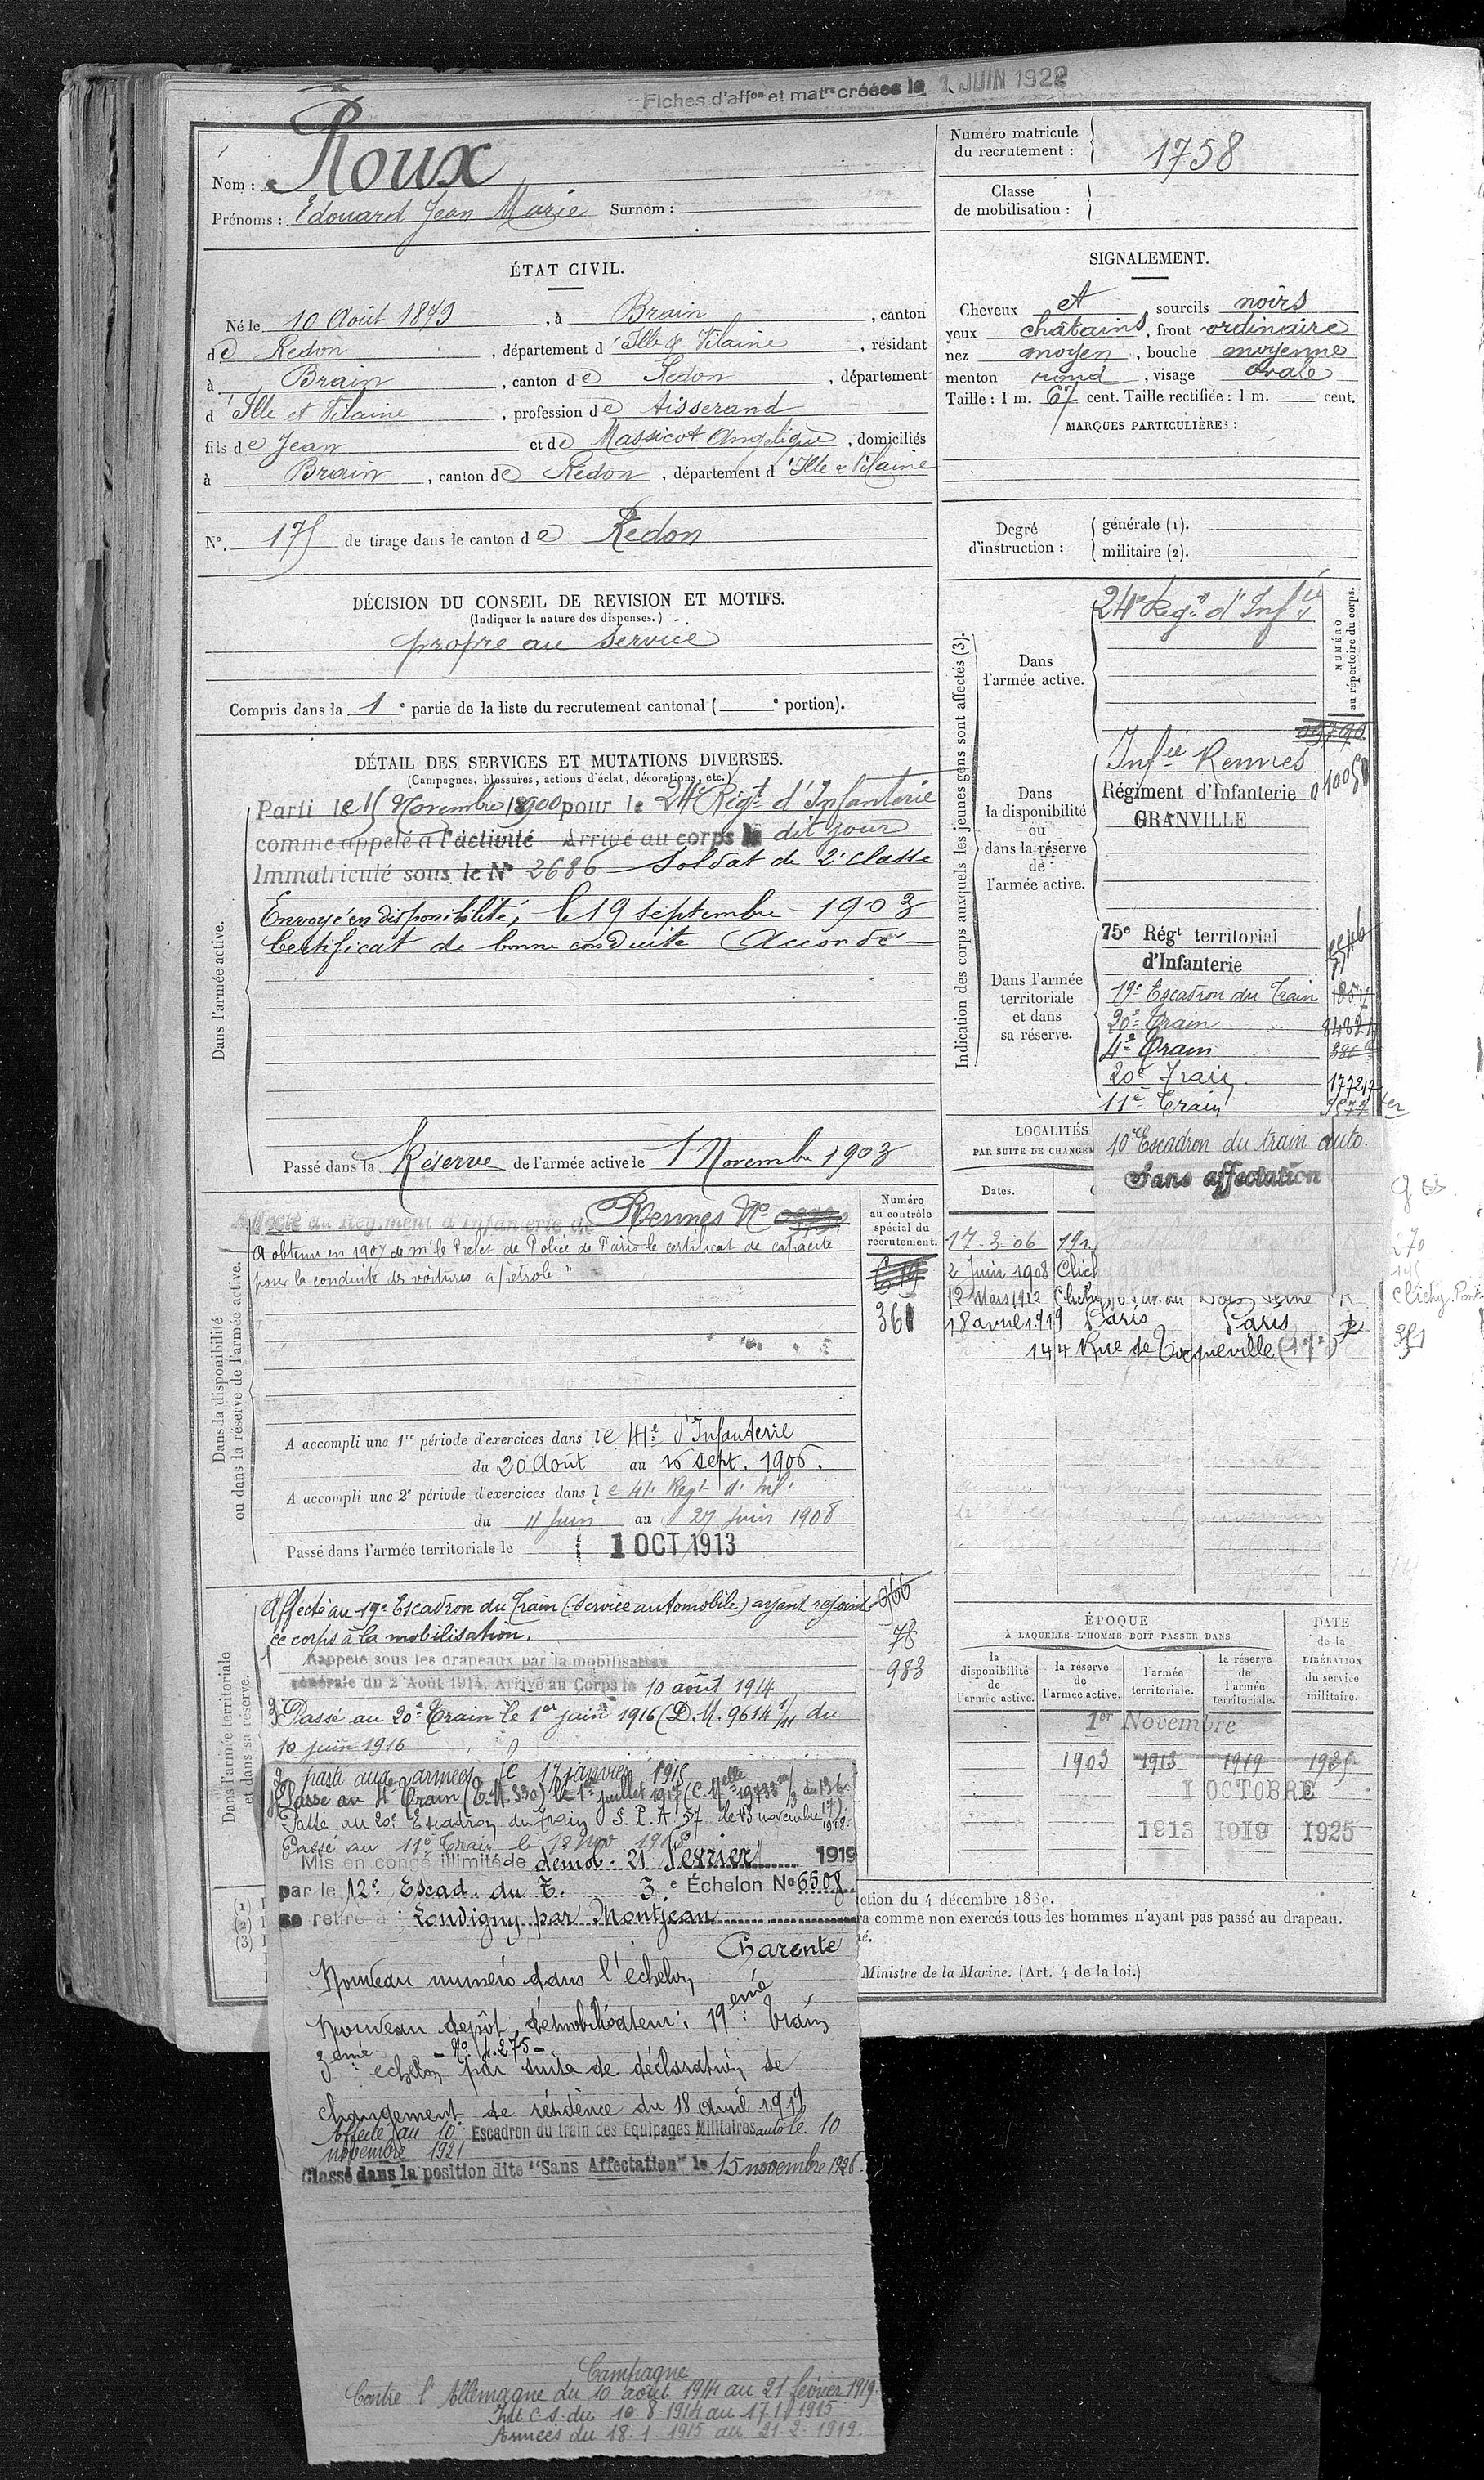 Fiches d'affon et matre créées le 1 JUIN 1922
Nom : Roux
Prénoms : Edouard Jean Marie Surnom :
Numéro matricule du recrutement : 1758
Classe de mobilisation :
ÉTAT CIVIL.
Né le 10 Août 1879, à Brain, canton
de Redon, département d'Ille & Vilaine, résidant
à Brain, canton de Redon, département
d'Ille et Vilaine, profession de tisserand
fils de Jean et de Massicot Angélique, domiciliés
à Brain, canton de Redon, département d'Ille & Vilaine
N°. 175 de tirage dans le canton de Redon
SIGNALEMENT.
Cheveux et sourcils noirs
yeux châtains, front ordinaire
nez moyen, bouche moyenne
menton rond, visage ovale
Taille : 1 m. 67 cent. Taille rectifiée : 1 m. cent.
MARQUES PARTICULIÈRES :
Degré d'instruction :
générale (1).
militaire (2).
DÉCISION DU CONSEIL DE REVISION ET MOTIFS.
(Indiquer la nature des dispenses.)
propre au service
Compris dans la 1e partie de la liste du recrutement cantonal ( e portion).
DÉTAIL DES SERVICES ET MUTATIONS DIVERSES.
(Campagnes, blessures, actions d'éclat, décorations, etc.)
Dans l'armée active.
Parti le 15 Novembre 1900 pour le 24e Régt d'Infanterie
comme appelé à l'activité Arrivé au corps le dit jour
Immatriculé sous le N° 2686 Soldat de 2e classe
Envoyé en disponibilité, le 19 septembre 1903
Certificat de bonne conduite Accordé
Passé dans la Réserve de l'armée active le 1 Novembre 1903
Dans la disponibilité ou dans la réserve de l'armée active.
Affecté au Régiment d'Infanterie de Rennes No
A obtenu en 1907 de mr le Préfet de Police de Paris le certificat de capacité
pour la conduite des voitures à pétrole"
A accompli une 1re période d'exercices dans le 41e d'Infanterie
du 20 Août au 16 sept. 1906.
A accompli une 2e période d'exercices dans le 41e Regt d'Inf.
du 11 Juin au 27 juin 1908
Passé dans l'armée territoriale le 1 OCT 1913
Numéro au contrôle spécial du recrutement.
361
Dans l'armée territoriale et dans sa réserve.
Affecté au 19e Escadron du Train (Service automobile) ayant rejoint
ce corps à la mobilisation.
Rappelé sous les drapeaux par la mobilisation
générale du 2 Août 1914. Arrivé au Corps le 10 août 1914
Passé au 20e Train le 1er juin 1916 (D.M. 9614 1/11 du
10 juin 1916
parti aux armées le 17 janvier 1915
Passé au 4e Train (T.M. 330) le 1er juillet 1917
Passé au 20e Escadron du Train S.P.A 57 le 13 novembre
Passé au 11e Train le 18 Nov 1918
Mis en congé illimité de démob. 21 Février 1919
par le 12e Escad. du T. 3e Échelon No 6508
se retire à Louvigny par Montjean
Charente
Nouveau numéro dans l'échelon
Nouveau dépôt démobilisateur : 19ème Train
- No 4.275 -
3ème échelon par suite de déclaration de
changement de résidence du 18 avril 1919
Affecté au 10e Escadron du train des Equipages Militaires auto le 10
novembre 1921
Classé dans la position dite "Sans Affectation" le 15 novembre 1926
Campagne
Contre l'Allemagne du 10 août 1914 au 21 février 1919
Int C.S. du 10.8.1914 au 17.1.1915
Armées du 18.1.1915 au 21.2.1919.
78
983
Indication des corps auxquels les jeunes gens sont affectés (3).
NUMÉRO au répertoire du corps.
Dans l'armée active.
24e Regt d'Infie
Dans la disponibilité ou dans la réserve de l'armée active.
Infie Rennes
Régiment d'Infanterie
GRANVILLE
Dans l'armée territoriale et dans sa réserve.
75e Régt territorial
d'Infanterie
19e Escadron du Train
20e Train
4e Train
20e Train
11e Train
10e Escadron du train auto.
Sans affectation
LOCALITÉS
PAR SUITE DE CHANGEM
Dates.
17-3-06
2 Juin 1908 Clich
12 Mars 1912 Clichy
18 avril 1919 Paris Paris R
144 Rue de Tocqueville (17e)
ÉPOQUE
À LAQUELLE L'HOMME DOIT PASSER DANS
la disponibilité de l'armée active.
la réserve de l'armée active.
l'armée territoriale.
la réserve de l'armée territoriale.
DATE de la LIBÉRATION du service militaire.
1er Novembre
1903 1913 1919 1925
1 OCTOBRE
1913 1919 1925
(1)
(2)
(3)
ction du 4 décembre 1889.
ra comme non exercés tous les hommes n'ayant pas passé au drapeau.
Ministre de la Marine. (Art. 4 de la loi.)